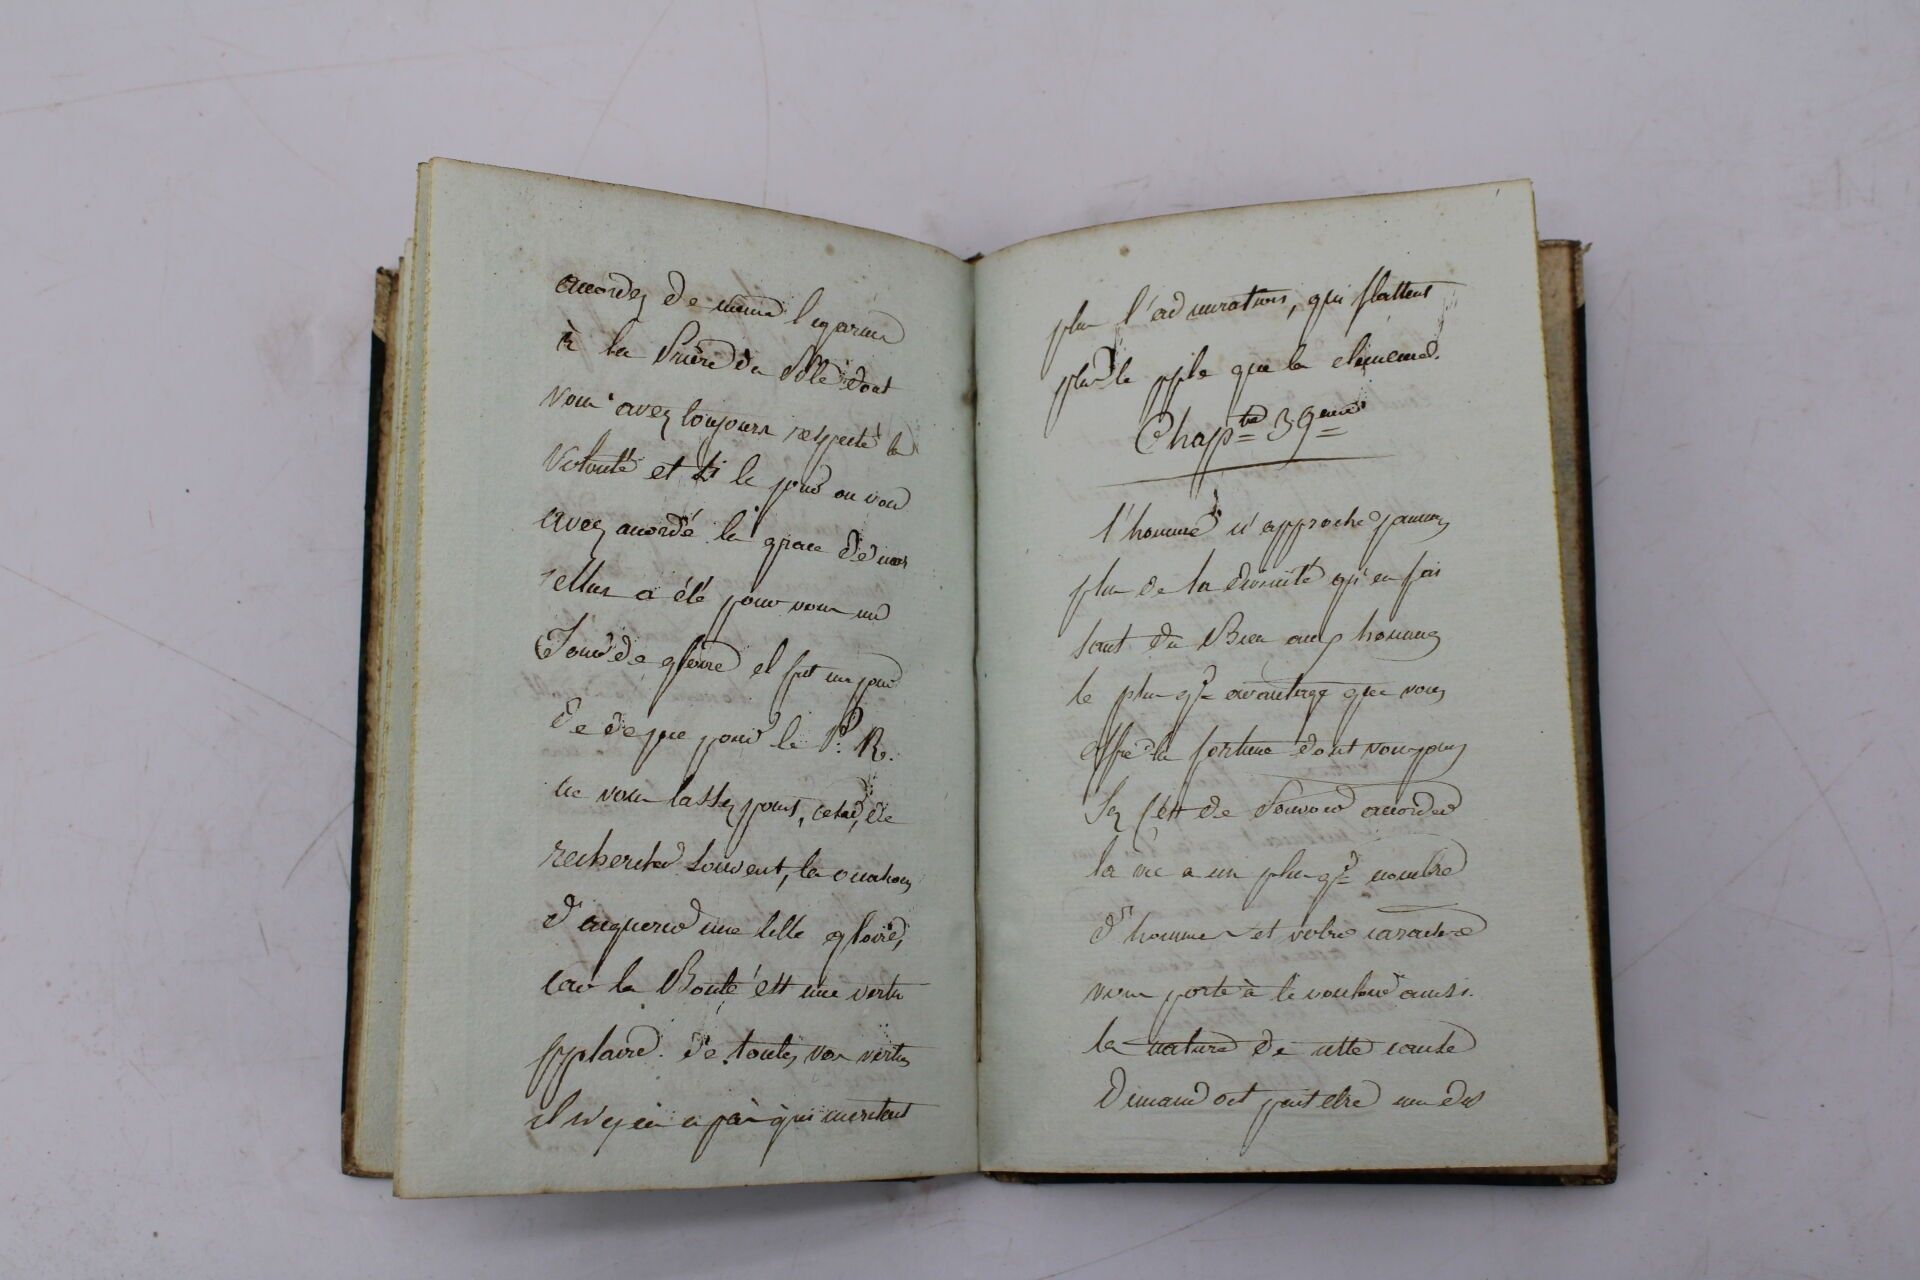 accordez de meme ligarius
à la Priere du Pple dont
vous avez toujours respecté la
volonté et si le jour ou vous
avez accordé la grace de mar
cellus a été pour vous un
Jour de gloire il fut un jour
de de pour le P. R.
ne vous lassez point, cesar, de
rechercher souvent, la occasion
d'acquerir une telle gloire,
car la Bonté est une vertu
pplaire. de toutes vos vertus
il n'y en a pas qui meritent
plus l'admiration, qui flattent
plus le pple que la clemence.
Chaptre 39eme
l'homme n'approche jamais
plus de la divinité qu'en fai
sant du Bien aux hommes
le plus gd avantage que vous
offre la fortune dont vous joui
sez c'est de Pouvoir accorder
la vie a un plus gd nombre
d'hommes et votre caractere
vous porte à le vouloir aussi.
la nature de cette cause
demandoit peut etre un dis